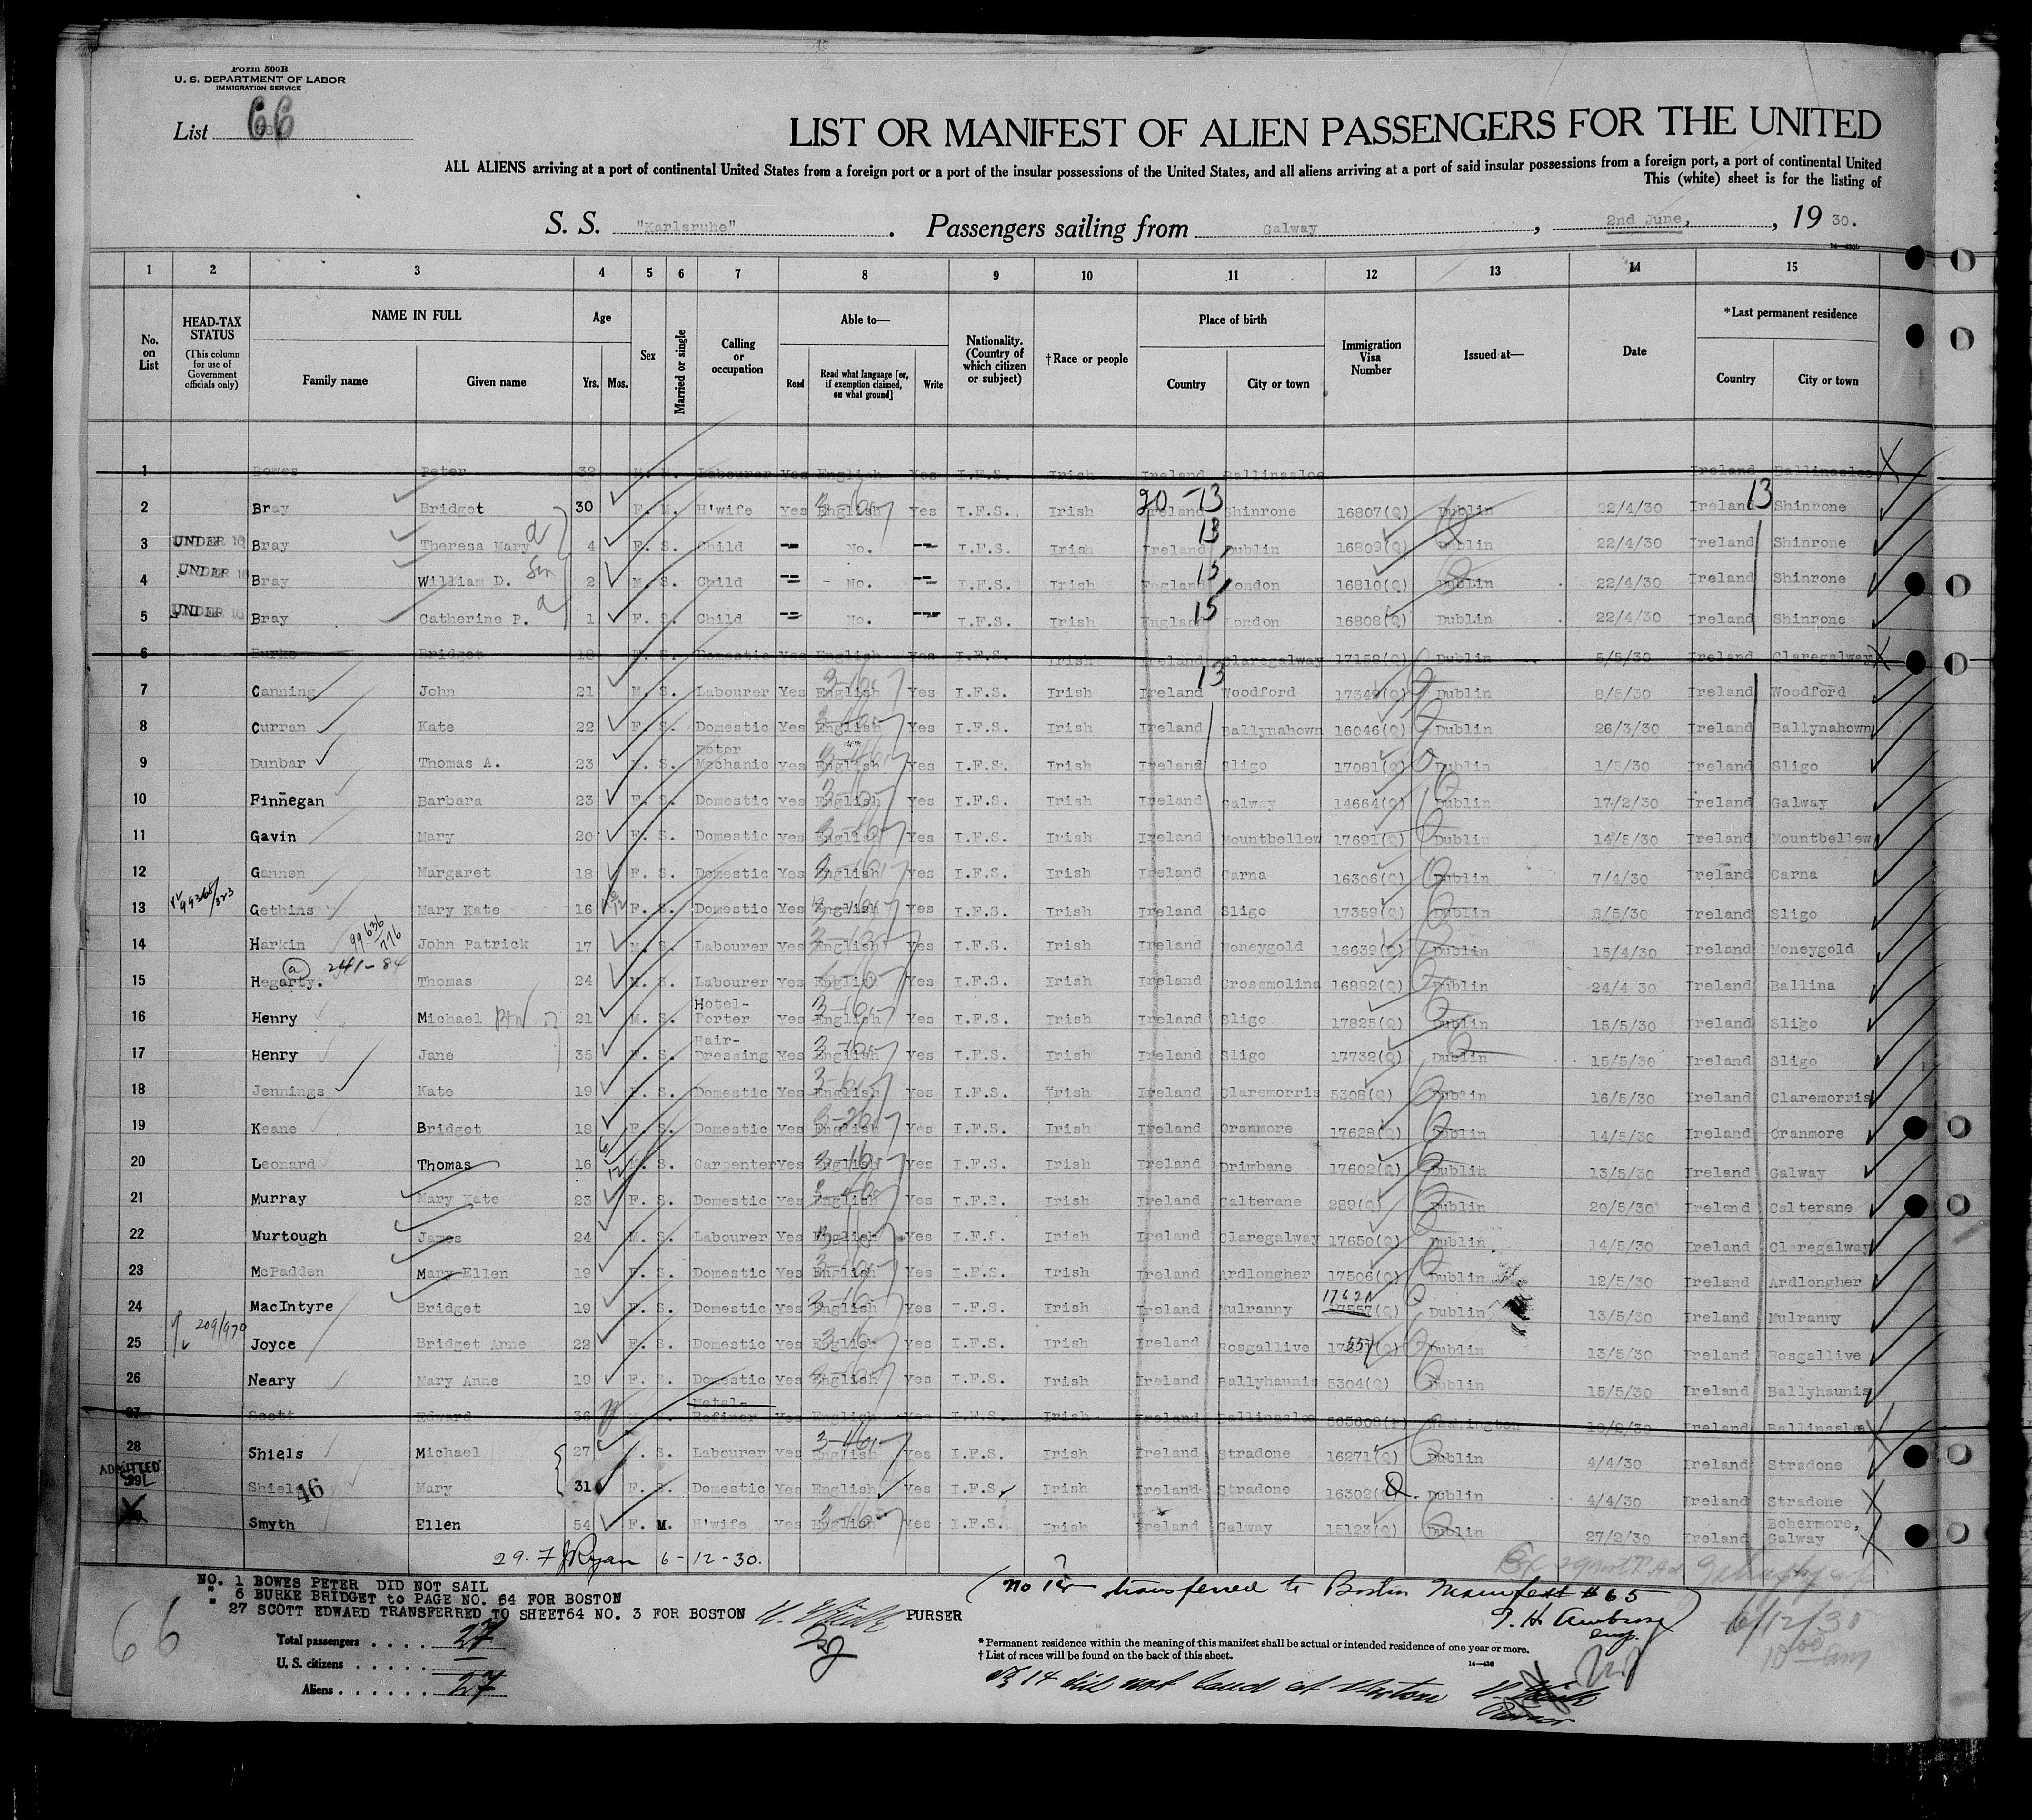 Form 500B
U. S. DEPARTMENT OF LABOR
IMMIGRATION SERVICE
List 66
LIST OR MANIFEST OF ALIEN PASSENGERS FOR THE UNITED
ALL ALIENS arriving at a port of continental United States from a foreign port or a port of the insular possessions of the United States, and all aliens arriving at a port of said insular possessions from a foreign port, a port of continental United
This (white) sheet is for the listing of
S. S. "Karlsruhe". Passengers sailing from Galway, 2nd June, , 19 30.
1 2 3 4 5 6 7 8 9 10 11 12 13 14 15
No. on List HEAD-TAX STATUS (This column for use of Government officials only) NAME IN FULL Family name Given name Age Yrs. Mos. Sex Married or single Calling or occupation Able to— Read Read what language [or, if exemption claimed, on what ground] Write Nationality. (Country of which citizen or subject) †Race or people Place of birth Country City or town Immigration Visa Number Issued at— Date *Last permanent residence Country City or town
1 Bowes Peter 32 M. M. Labourer Yes English Yes I.F.S. Irish Ireland Ballinasloe Ireland Ballinasloe
2 Bray Bridget 30 F. M. H'wife Yes English Yes I.F.S. Irish Ireland Shinrone 16807(Q) Dublin 22/4/30 Ireland Shinrone
3 UNDER 16 Bray Theresa Mary 4 F. S. Child -- No. -- I.F.S. Irish Ireland Dublin 16809(Q) Dublin 22/4/30 Ireland Shinrone
4 UNDER 16 Bray William D. 2 M. S. Child -- No. -- I.F.S. Irish England London 16810(Q) Dublin 22/4/30 Ireland Shinrone
5 UNDER 16 Bray Catherine P. 1 F. S. Child -- No. -- I.F.S. Irish England London 16808(Q) Dublin 22/4/30 Ireland Shinrone
6 Burke Bridget 18 F. S. Domestic Yes English Yes I.F.S. Irish Ireland Claregalway 17158(Q) Dublin 5/5/30 Ireland Claregalway
7 Canning John 21 M. S. Labourer Yes English Yes I.F.S. Irish Ireland Woodford 17349(Q) Dublin 8/5/30 Ireland Woodford
8 Curran Kate 22 F. S. Domestic Yes English Yes I.F.S. Irish Ireland Ballynahown 16046(Q) Dublin 26/3/30 Ireland Ballynahown
9 Dunbar Thomas A. 23 M. S. Motor Mechanic Yes English Yes I.F.S. Irish Ireland Sligo 17081(Q) Dublin 1/5/30 Ireland Sligo
10 Finnegan Barbara 23 F. S. Domestic Yes English Yes I.F.S. Irish Ireland Galway 14664(Q) Dublin 17/2/30 Ireland Galway
11 Gavin Mary 20 F. S. Domestic Yes English Yes I.F.S. Irish Ireland Mountbellew 17691(Q) Dublin 14/5/30 Ireland Mountbellew
12 Gannon Margaret 18 F. S. Domestic Yes English Yes I.F.S. Irish Ireland Carna 16306(Q) Dublin 7/4/30 Ireland Carna
13 Gethins Mary Kate 16 F. S. Domestic Yes English Yes I.F.S. Irish Ireland Sligo 17359(Q) Dublin 8/5/30 Ireland Sligo
14 Harkin 99636/776 John Patrick 17 M. S. Labourer Yes English Yes I.F.S. Irish Ireland Moneygold 16639(Q) Dublin 15/4/30 Ireland Moneygold
(a) 241-84
15 Hegarty. Thomas 24 M. S. Labourer Yes English Yes I.F.S. Irish Ireland Crossmolina 16892(Q) Dublin 24/4 30 Ireland Ballina
16 Henry Michael 21 M. S. Hotel-Porter Yes English Yes I.F.S. Irish Ireland Sligo 17825(Q) Dublin 15/5/30 Ireland Sligo
17 Henry Jane 35 F. S. Hair-Dressing Yes English Yes I.F.S. Irish Ireland Sligo 17732(Q) Dublin 15/5/30 Ireland Sligo
18 Jennings Kate 19 F. S. Domestic Yes English Yes I.F.S. Irish Ireland Claremorris 5308(Q) Dublin 16/5/30 Ireland Claremorris
19 Keane Bridget 18 F. S. Domestic Yes English Yes I.F.S. Irish Ireland Oranmore 17628(Q) Dublin 14/5/30 Ireland Oranmore
20 Leonard Thomas 16 M. S. Carpenter Yes English Yes I.F.S. Irish Ireland Drimbane 17602(Q) Dublin 13/5/30 Ireland Galway
21 Murray Mary Kate 23 F. S. Domestic Yes English Yes I.F.S. Irish Ireland Calterane 289(Q) Dublin 20/5/30 Ireland Calterane
22 Murtough James 24 M. S. Labourer Yes English Yes I.F.S. Irish Ireland Claregalway 17650(Q) Dublin 14/5/30 Ireland Claregalway
23 McPadden Mary Ellen 19 F. S. Domestic Yes English Yes I.F.S. Irish Ireland Ardlongher 17506(Q) Dublin 12/5/30 Ireland Ardlongher
24 MacIntyre Bridget 19 F. S. Domestic Yes English Yes I.F.S. Irish Ireland Mulranny 17557(Q) Dublin 13/5/30 Ireland Mulranny
25 209/970 Joyce Bridget Anne 22 F. S. Domestic Yes English Yes I.F.S. Irish Ireland Rosgallive Dublin 13/5/30 Ireland Rosgallive
26 Neary Mary Anne 19 F. S. Domestic Yes English Yes I.F.S. Irish Ireland Ballyhaunis 5304(Q) Dublin 15/5/30 Ireland Ballyhaunis
27 Scott Edward 36 M. S. Metal-Refiner Yes English Yes I.F.S. Irish Ireland Ballinasloe Washington Ireland Ballinasloe
28 Shiels Michael 27 M. S. Labourer Yes English Yes I.F.S. Irish Ireland Stradone 16271(Q) Dublin 4/4/30 Ireland Stradone
ADMITTED 29 Shiels 46 Mary 31 F. S. Domestic Yes English Yes I.F.S. Irish Ireland Stradone 16302(Q) Dublin 4/4/30 Ireland Stradone
Smyth Ellen 54 F. M. H'wife Yes English Yes I.F.S. Irish Ireland Galway 15123(Q) Dublin 27/2/30 Ireland Bohermore, Galway
29. F J Ryan 6-12-30.
NO. 1 BOWES PETER DID NOT SAIL
" 6 BURKE BRIDGET to PAGE NO. 64 FOR BOSTON
" 27 SCOTT EDWARD TRANSFERRED TO SHEET64 NO. 3 FOR BOSTON PURSER
transferred to Boston Manifest #65
J. H. Ambrose
6/12/30
66
Total passengers . . . . 27
U. S. citizens . . . . . —
Aliens . . . . . . 27
* Permanent residence within the meaning of this manifest shall be actual or intended residence of one year or more.
† List of races will be found on the back of this sheet.
14 did not land at Boston
Purser